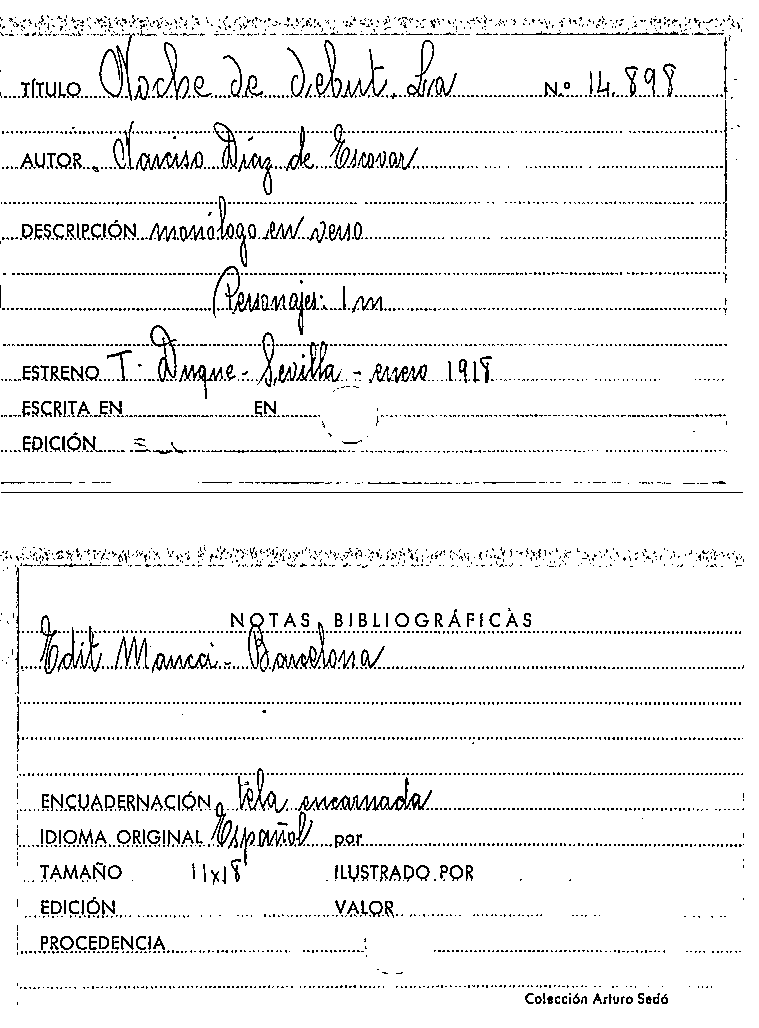 TÍTULO Noche de debut. La N.º 14.898
AUTOR. Narciso Díaz de Escovar
DESCRIPCIÓN monólogo en verso
Personajes: 1 m
ESTRENO T. Duque - Sevilla - enero 1918
ESCRITA EN EN
EDICIÓN
NOTAS BIBLIOGRÁFICAS
Edit Maucci - Barcelona
ENCUADERNACIÓN tela encarnada
IDIOMA ORIGINAL Español por
TAMAÑO 11x18 ILUSTRADO POR
EDICIÓN VALOR
PROCEDENCIA
Colección Arturo Sedó